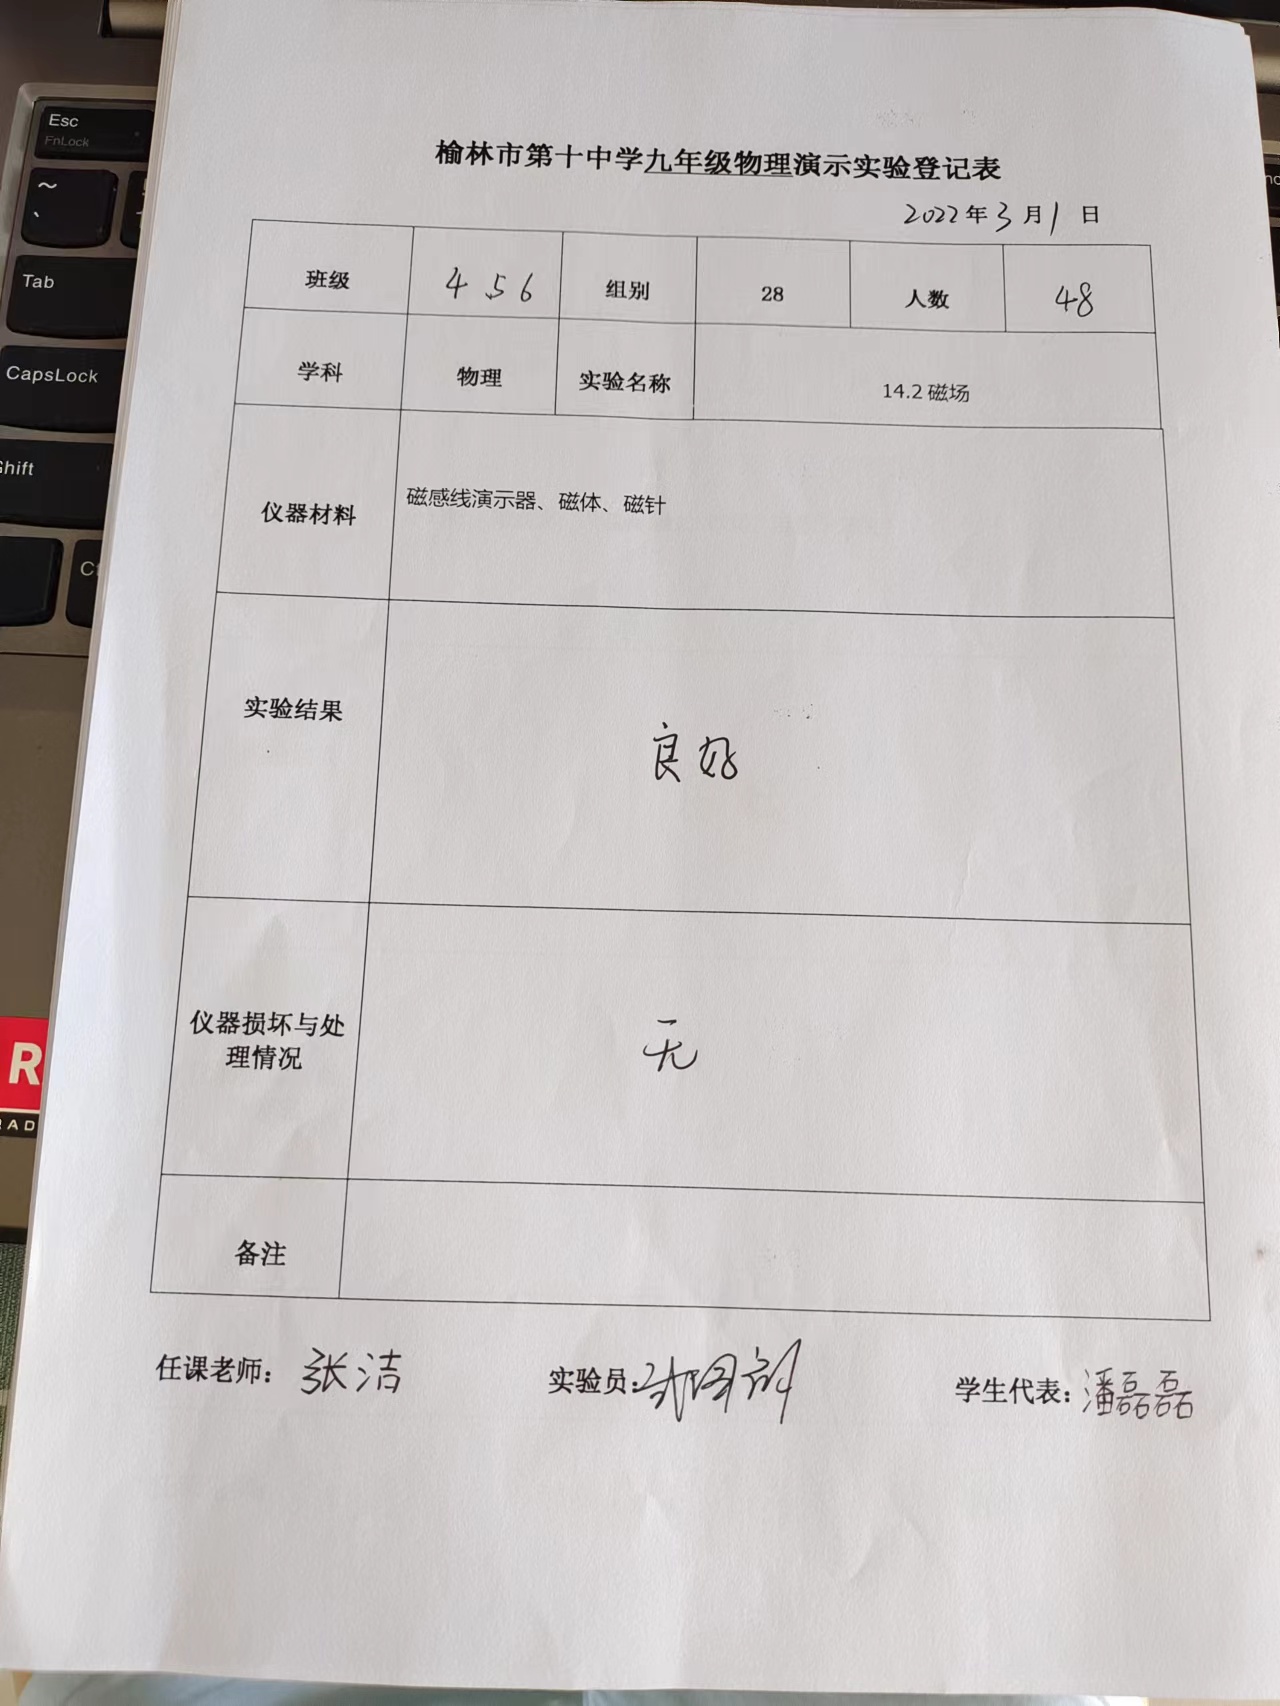 Esc
FnLock
~
、
Tab
CapsLock
Shift
R
RAD
榆林市第十中学九年级物理演示实验登记表
2022年3月1日
班级 4 5 6 组别 28 人数 48
学科 物理 实验名称 14.2 磁场
仪器材料 磁感线演示器、磁体、磁针
实验结果 良好
仪器损坏与处
理情况 无
备注
任课老师：张洁 实验员： 学生代表：潘磊磊